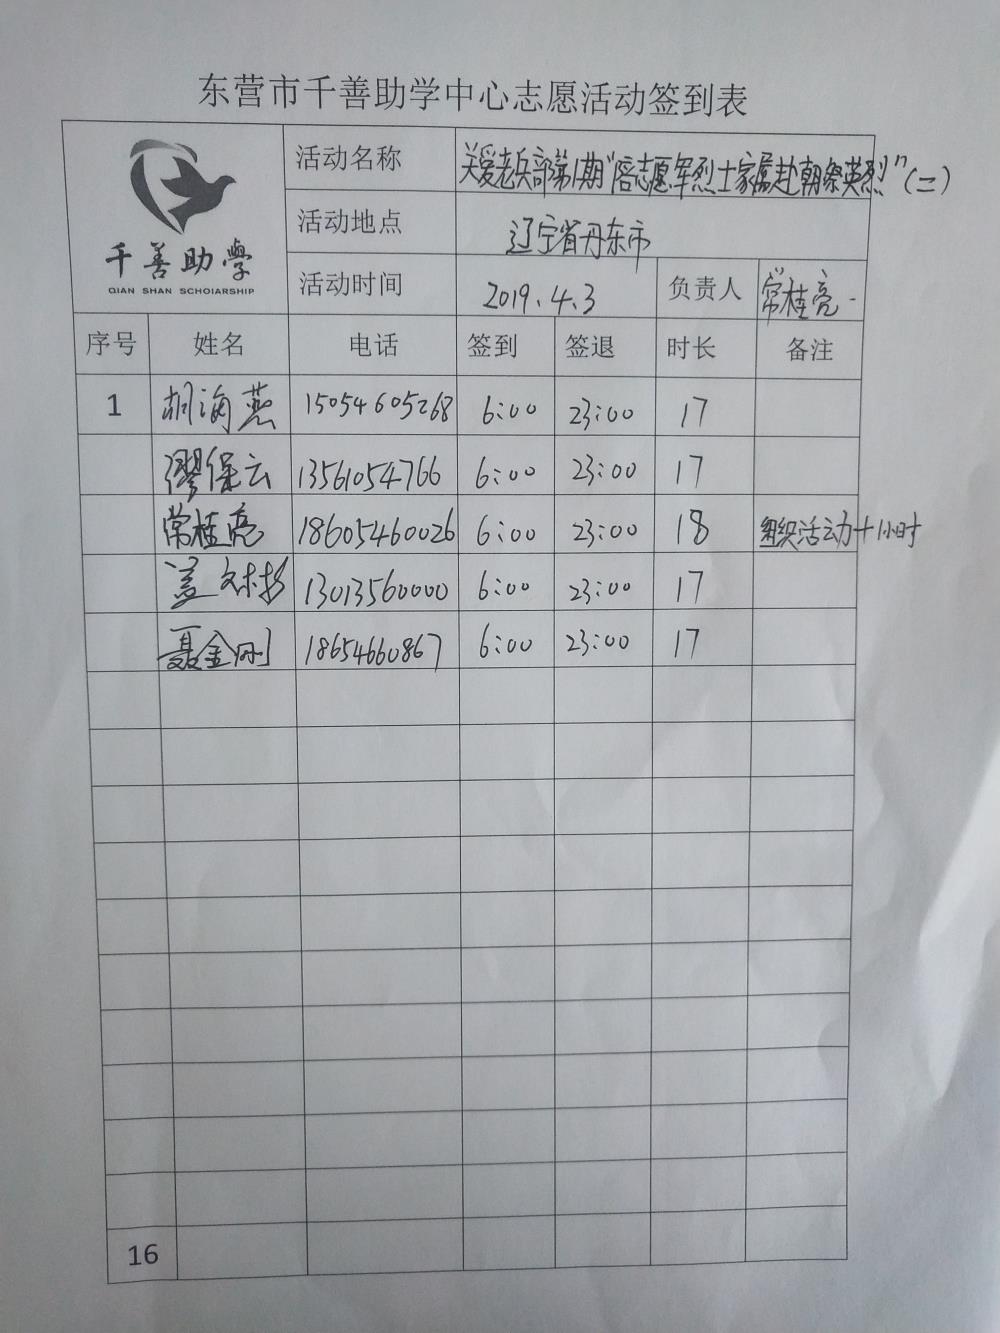 东营市千善助学中心志愿活动签到表
千善助学
QIAN SHAN SCHOlARSHIP
活动名称 关爱老兵部第1期“陪志愿军烈士家属赴朝祭英烈”(二)
活动地点 辽宁省丹东市
活动时间 2019.4.3 负责人 常桂亮
序号 姓名 电话 签到 签退 时长 备注
1 胡海燕 15054605268 6:00 23:00 17
缪保云 13561054766 6:00 23:00 17
常桂亮 18605460026 6:00 23:00 18 组织活动+1小时
盖 13013560000 6:00 23:00 17
聂金刚 18654660867 6:00 23:00 17
16